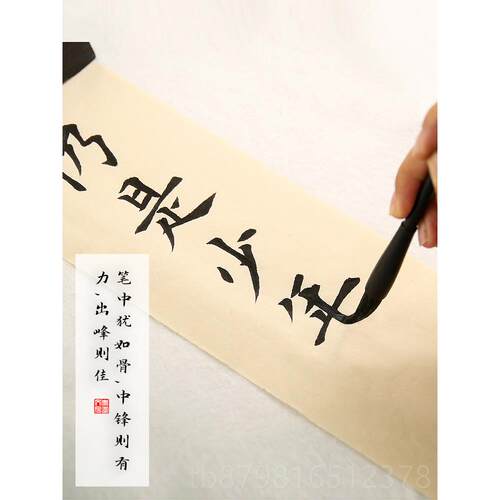 仍是少年
笔中犹如骨、中锋则有
力、出峰则佳
tb879816512378